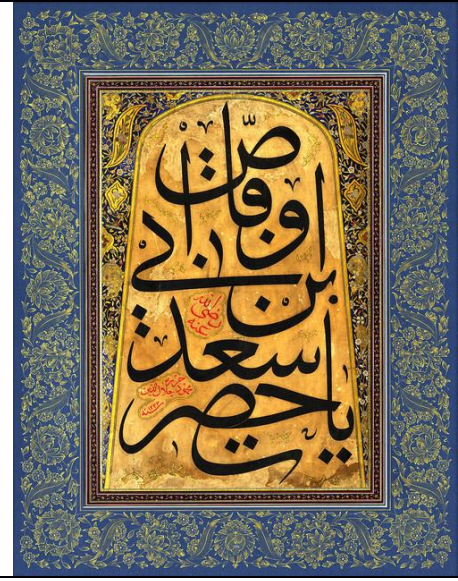 يا حضرت
سعد
بن ابي
وقاص
رضي الله عنه